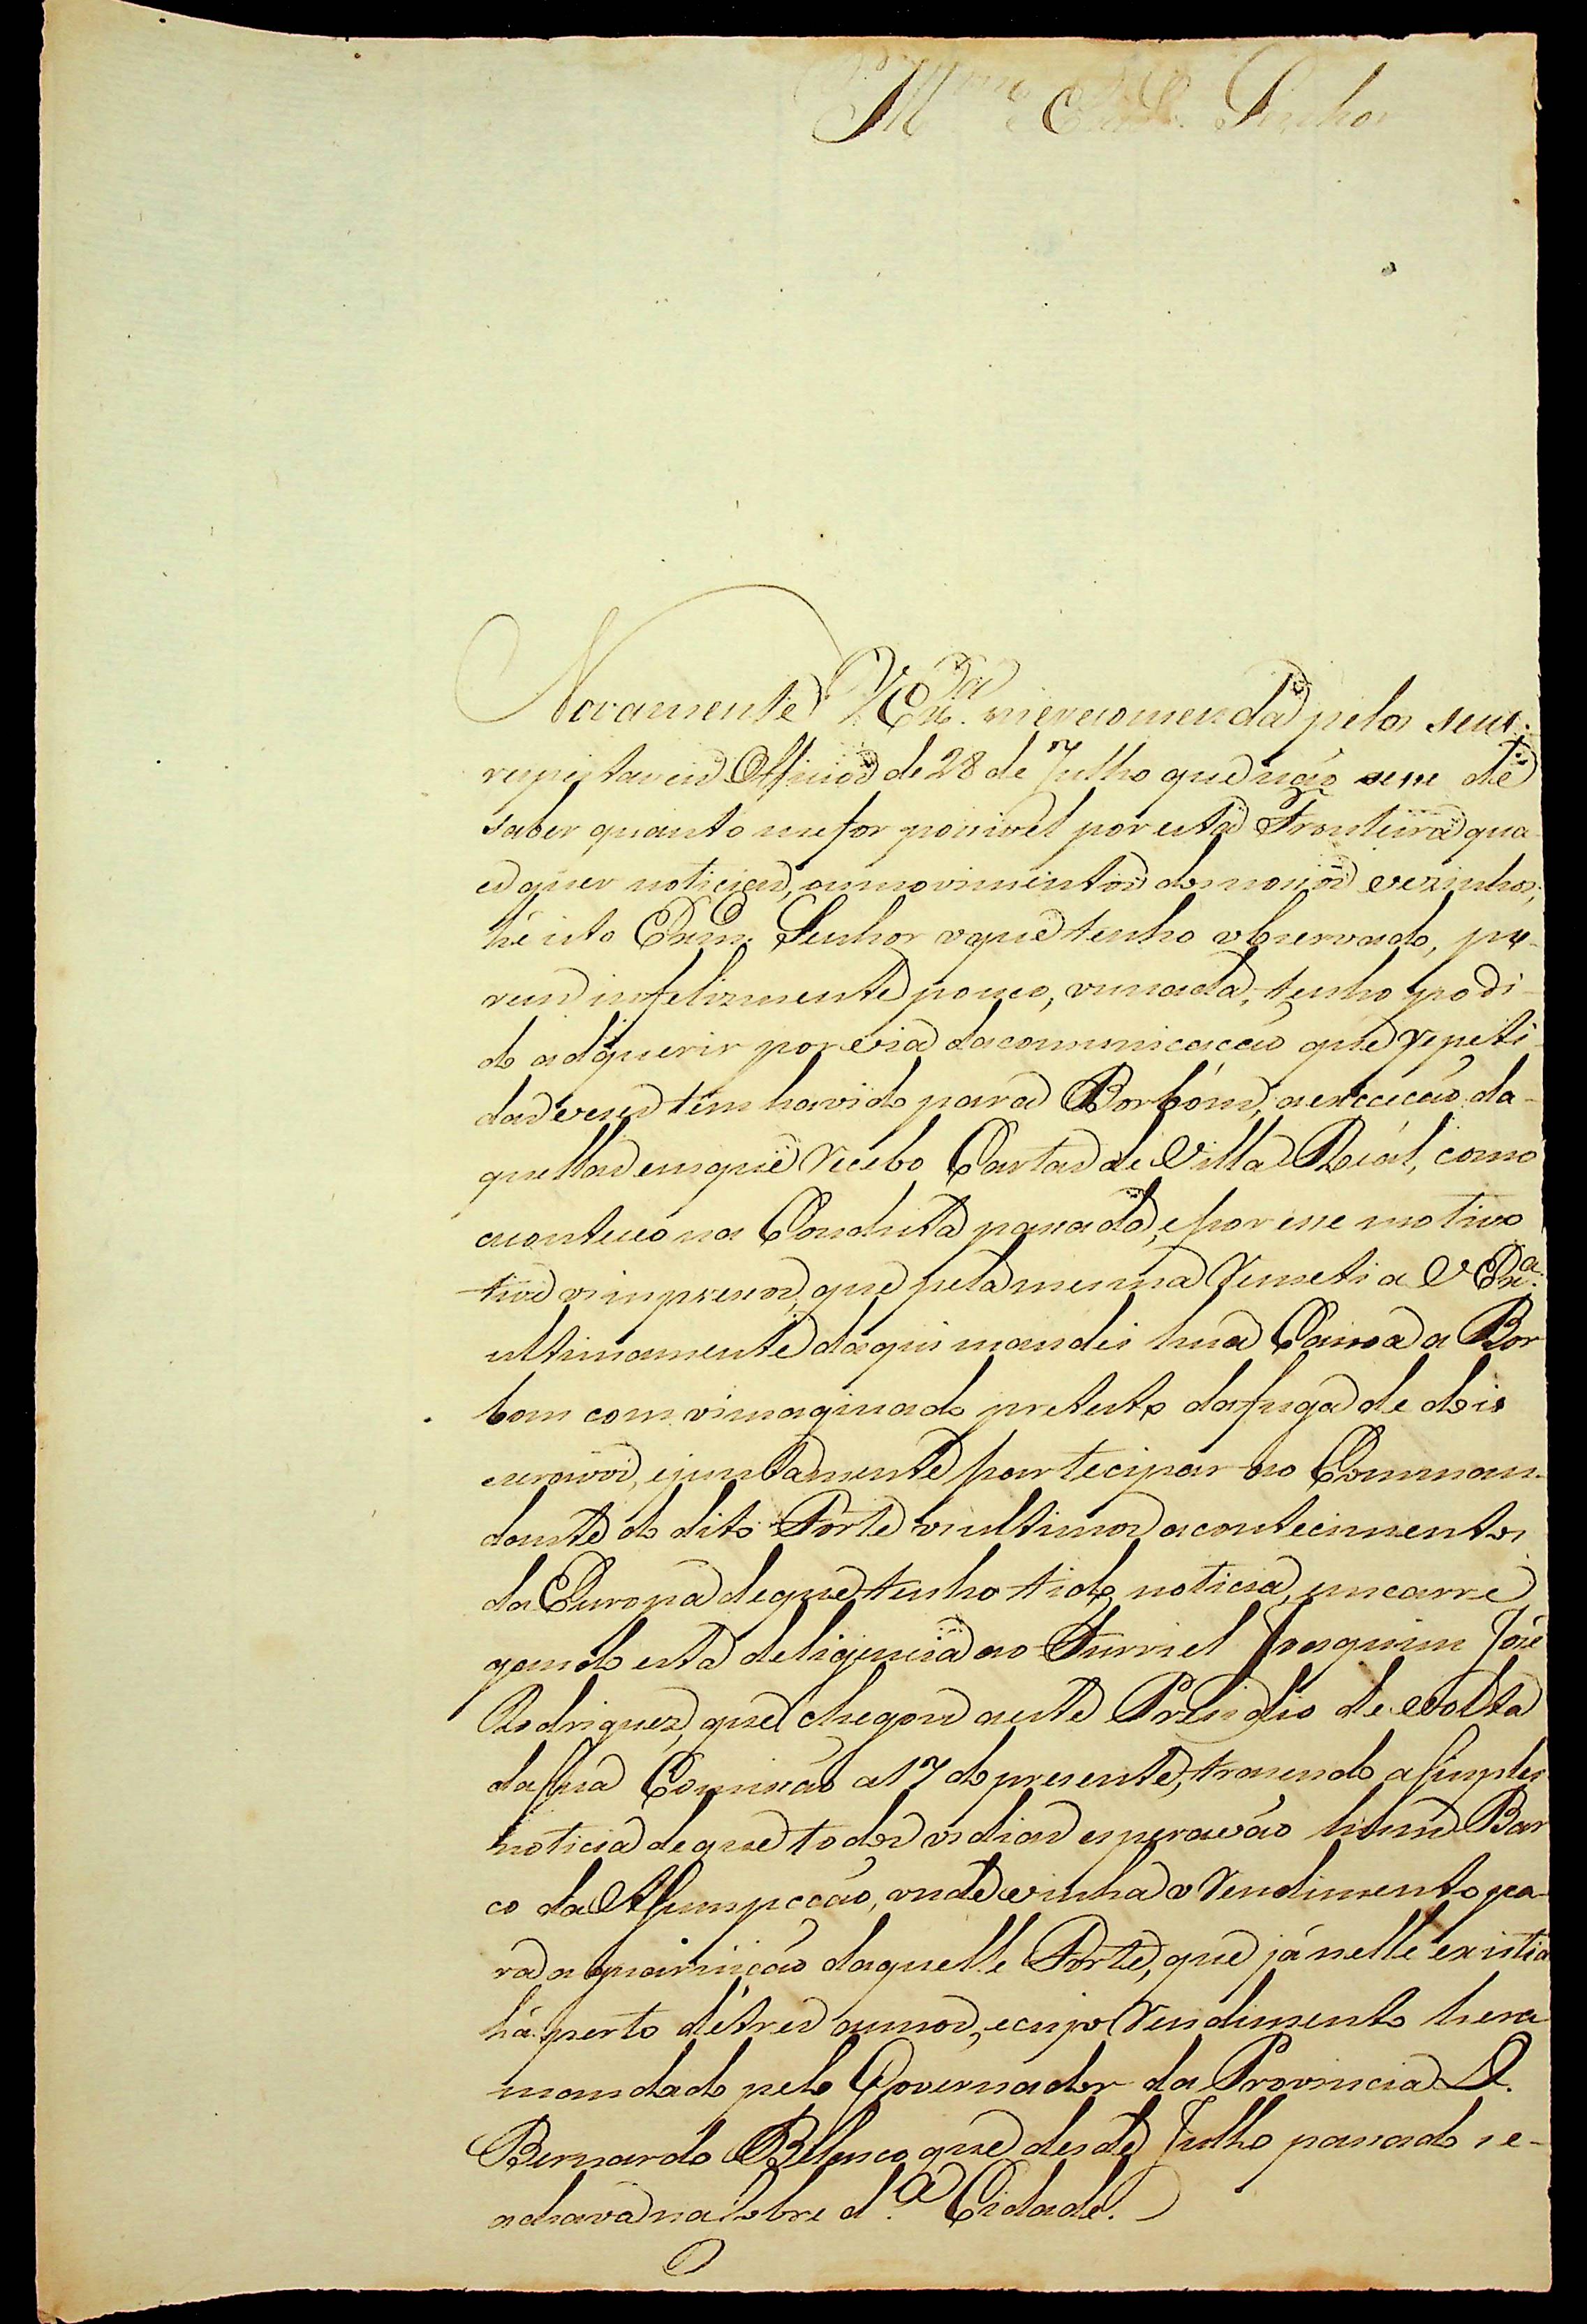 Ill.mo e Ex.mo Senhor
Novamente V Ex.a me recomenda pelos seus
respeitaveis Officios de 28 de Julho que não cesse de
saber quanto me for possivel por esta Fronteira qua-
es quer noticias, ou movimentos dos nossos vezinhos;
hé isto Exm.o Senhor o que tenho observado, po-
rem infelizmente pouco, ou nada, tenho podi-
do adquerir por via da comunicacão que repeti-
das vezes tem havido para Borbón, a excecão da-
quellas em que recebo Cartas de Villa Reál, como
aconteceo na Conduta passada, e por esse motivo
tive os impressos, que pela mesma remeti a V Ex.a
ultimamente daqui mandei hua Canoa a Bor
bom com o imaginado pretexto da fuga de dois
escravos, e juntamente participar ao Comman-
dante do dito Forte os ultimos acontecimentos
da Europa de que tenho tido noticia, encarre
gando esta deligencia ao Furriel Joaquim José
Rodrigues, que chegou a este Presidio de volta
da sua Comissão a 17 do presente, trasendo a simples
noticia de que todos os dias esperavão hum Bar
co da Assumpccão, onde vinha o rendimento pa-
ra a guarnição daquelle Forte, que já nelle existia
há perto de tres annos, e cujo rendimento hera
mandado pelo Governador da Provincia D.
Bernardo Belasco, que desde Julho passado se
achava na sobre d.a Cidade.